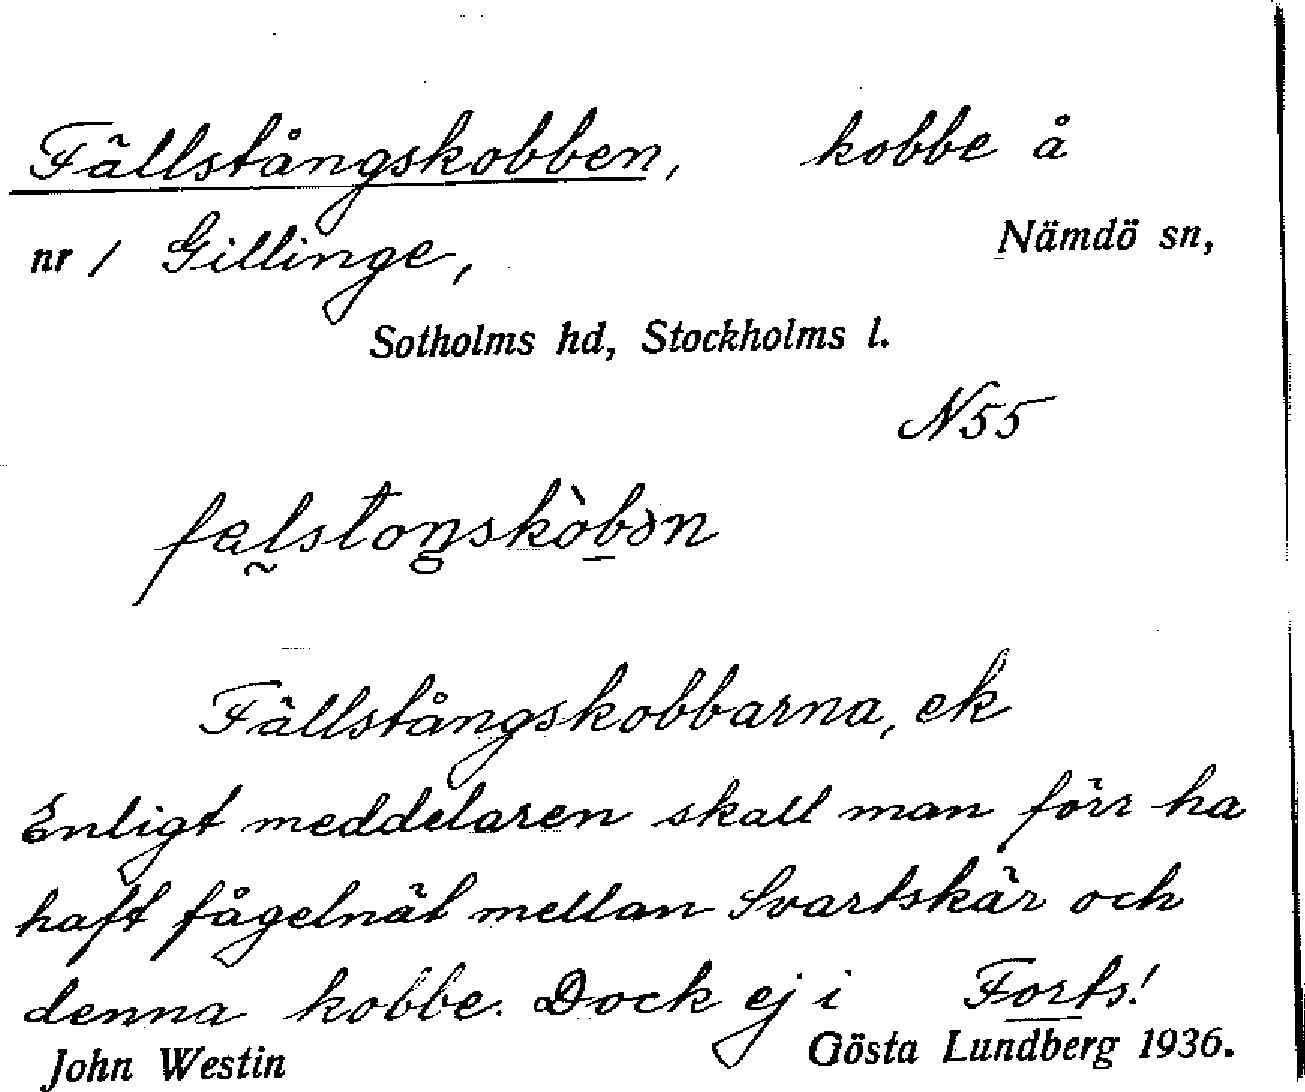 Fällstångskobben, kobbe å
nr 1 Gillinge, Nämdö sn,
Sotholms hd, Stockholms l.
N55
Fällstångskobbarna, ek
Enligt meddelaren skall man förr ha
haft fågelnät mellan Svartskär och
denna kobbe. Dock ej i Forts!
John Westin Gösta Lundberg 1936.